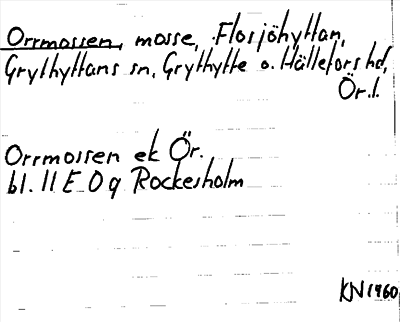 Orrmossen, mosse, Flosjöhyttan,
Grythyttans sn, Grythytte o. Hällefors hd,
Ör. l.
Orrmossen ek Ör.
bl. 11 E 0 g Rockesholm
KN 1960